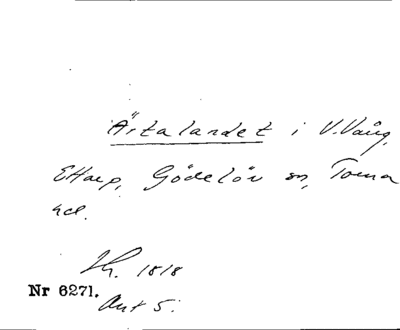 Ärtalandet i V. Vång,
E Harg, Gödelöv sn, Torna
hd.
Lh. 1818
Nr 6271.
Akt 5.